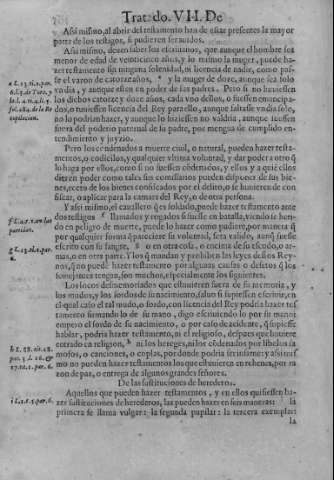 Tratado. VII. De
Asi mismo, al abrir del testamento han de estar presentes la mayor
parte de los testigos, si pudieren ser auidos.
Asi mismo, deuen saber los escriuanos, que aunque el hombre sea
menor de edad de veinticinco años, y lo mismo la muger, puede ha-
zer testamento sin ninguna solenidad, ni licencia de nadie, como pas-
se el varon de catorze años, y la muger de doze, aunque sea solo
vn dia, y aunque esten en poder de sus padres. Pero si no huuiessen
los dichos catorze y doze años, cada vno dellos, o fuessen emancipa-
dos, o tuuiessen licencia del Rey para ello, aunque faltasse vn dia solo,
no lo podrian hazer, y aunque lo hiziessen no valdria, aunque fuessen
fuera del poderio paternal de su padre, por mengua de cumplido en-
tendimiento y juyzio.
Pero los condenados a muerte ciuil, o natural, pueden hazer testa-
mentos, o codicilos, y qualquier vltima voluntad, y dar poder a otro q̃
lo haga por ellos, como si no fuessen cõdenados, y ellos y a quiẽ ellos
dieren poder como tales sus comissarios pueden disponer de sus bie-
nes, eceto de los bienes confiscados por el delito, o se huuieren de con-
fiscar, o aplicar para la camara del Rey, o de otra persona.
Y asi mismo, el cauallero q̃ es soldado, puede hazer su testamento ante
dos testigos llamados y rogados si fuesse en batalla, viendose he-
rido en peligro de muerte, puede lo hazer como pudiere, por manera q̃
por qualquier forma q̃ parezca su voluntad, sera valido, aunq̃ fuesse
escrito con su sangre, o en otra cosa, o encima de su escudo, o ar-
mas, o en otra parte. Y los q̃ mandan y prohiben las leyes destos Rey-
nos, q̃ no puedẽ hazer testamẽto por algunas causas o defetos q̃ los
tales tengan, son muchos, especialmente los siguientes.
Los locos desmemoriados que estuuieren fuera de su memoria, y
los mudos, y los sordos de su nacimiento, saluo si supiessen escriuir, en
el qual caso el tal mudo, o sordo, con licencia del Rey podra hazer tes-
tamento firmando lo de su mano, digo escriuiendo lo por su mano:
empero el sordo de su nacimiento, o por caso de accidente, q̃ supiesse
hablar, podria hazer testamento, ni el religioso, despues que huuiere
entrado en religion, ni los hereges, ni los cõdenados por libelos fa-
mosos, o canciones, o coplas, por donde podria ser infame: y asi mes-
mo no pueden hazer testamento los que estuuieren en rehenes, por ra-
zon de paz, o entrega de algunos grandes señores.
De las sustituciones de herederos.
Aquellos que pueden hazer testamentos, y en ellos quisiessen ha-
zer sustituciones de herederos, las pueden hazer en seys maneras: la
primera se llama vulgar: la segunda pupilar: la tercera exemplar:
la